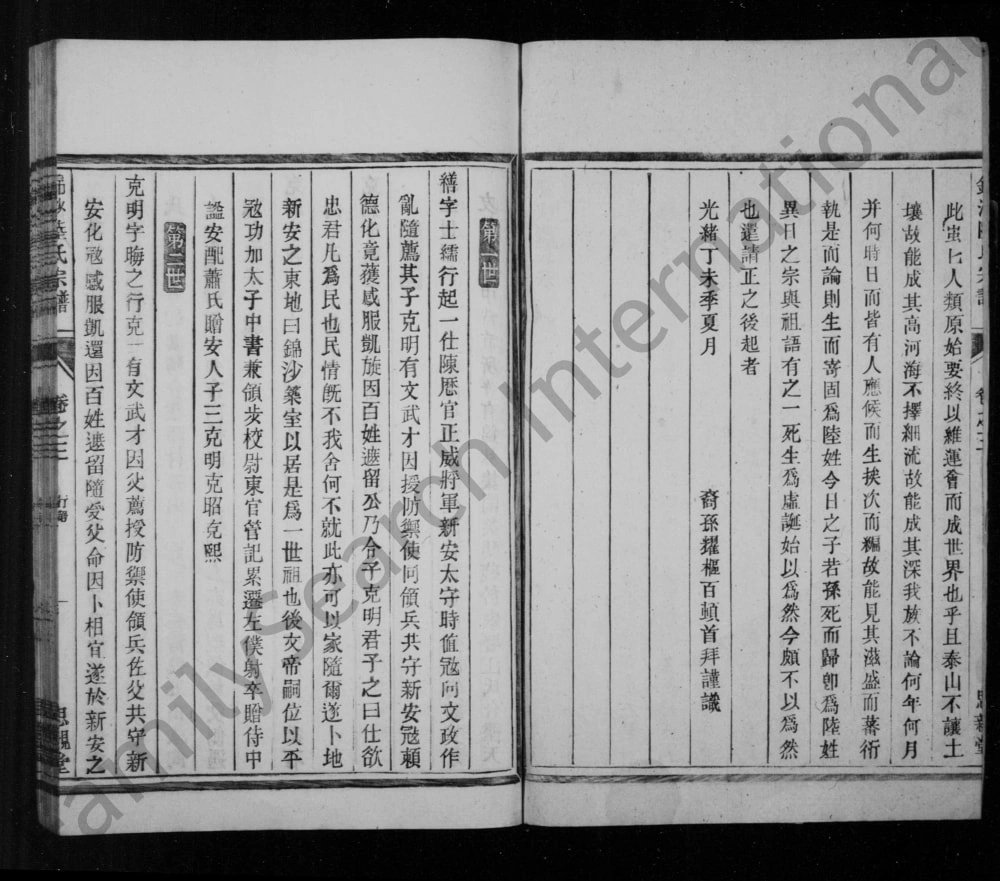 此蚩七人類原始要終以維運會而成世界也乎且泰山不讓土
壤故能成其高河海不擇細流故能成其深我族不論何年何月
并何時日而皆有人應候而生挨次而編故能見其滋盛而蕃衍
孰是而論則生而寄固爲陸姓今日之子若孫死而歸卽爲陸姓
異日之宗與祖語有之一死生爲虛誕始以爲然今頗不以爲然
也還請正之後起者
光緒丁未季夏月
裔孫耀樞百頓首拜謹識
卷之二
思親堂
第一世
繕字士繻行起一仕陳歷官正威將軍新安太守時值冦向文政作
亂隨薦其子克明有文武才因授防禦使同領兵共守新安冦賴
德化竟獲感服凱旋因百姓遮留公乃令子克明君子之曰仕欲
忠君凡爲民也民情旣不我舍何不就此亦可以家隨爾遂卜地
新安之東地曰錦沙築室以居是爲一世祖也後文帝嗣位以平
冦功加太子中書兼領步校尉東官管記累遷左僕射卒贈侍中
謚安配蕭氏贈安人子三克明克昭克熙
第二世
克明字晦之行克一有文武才因父薦授防禦使領兵佐父共守新
安化冦感服凱還因百姓遮留隨愛父命因卜相宜遂於新安之
氏宗譜
卷之二
行譜
一
思親堂
FamilySearch International